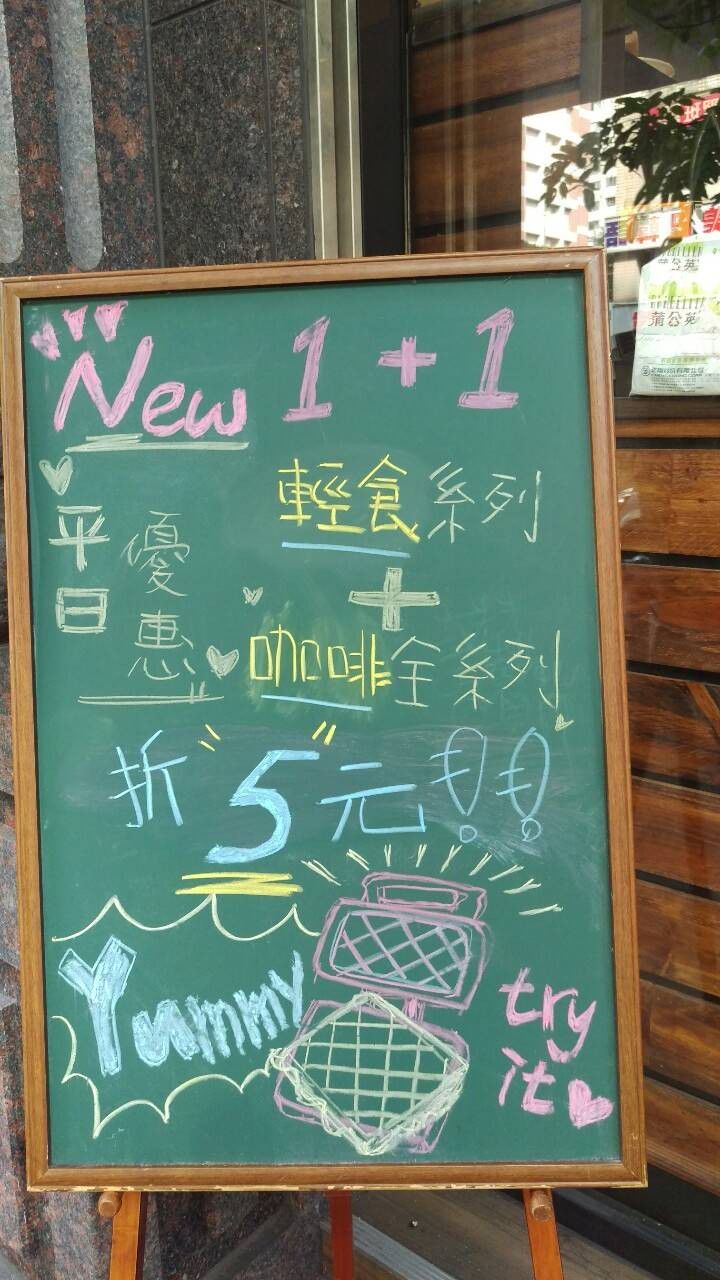 New 1+1
平日
優惠
輕食系列
+
咖啡全系列
折"5"元!!
Yummy
try
it
蒲公英
蒲公英